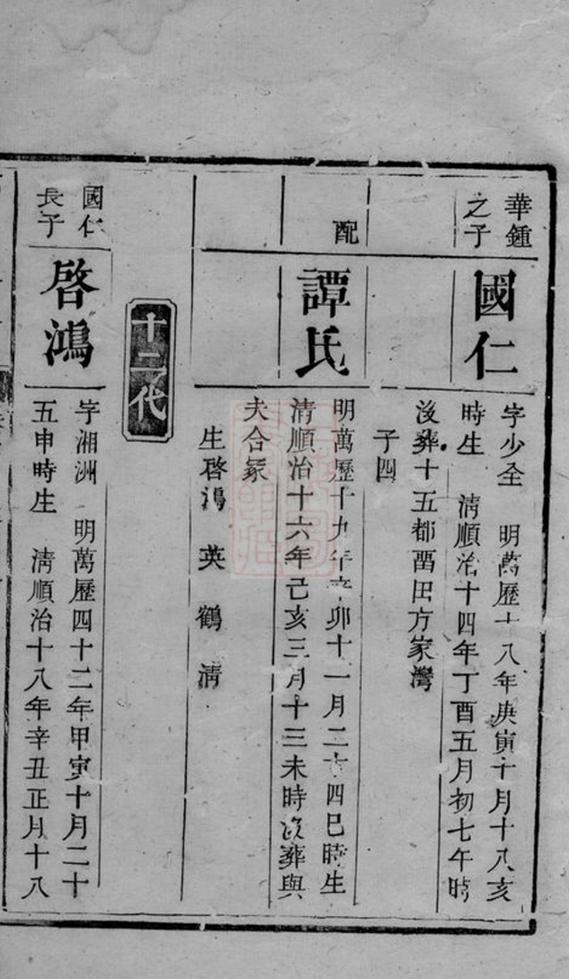 華鍾
之子
國仁
字少全　明萬歷十八年庚寅十月十八亥
時生　清順治十四年丁酉五月初七午時
沒葬十五都畱田方家灣
子四
配
譚氏
明萬歷十九年辛卯十一月二十四巳時生
清順治十六年己亥三月十三未時沒葬與
夫合冢
生啓鴻　英　鶴　清
十二代
國仁
長子
啓鴻
字湘洲　明萬歷四十二年甲寅十月二十
五申時生　清順治十八年辛丑正月十八